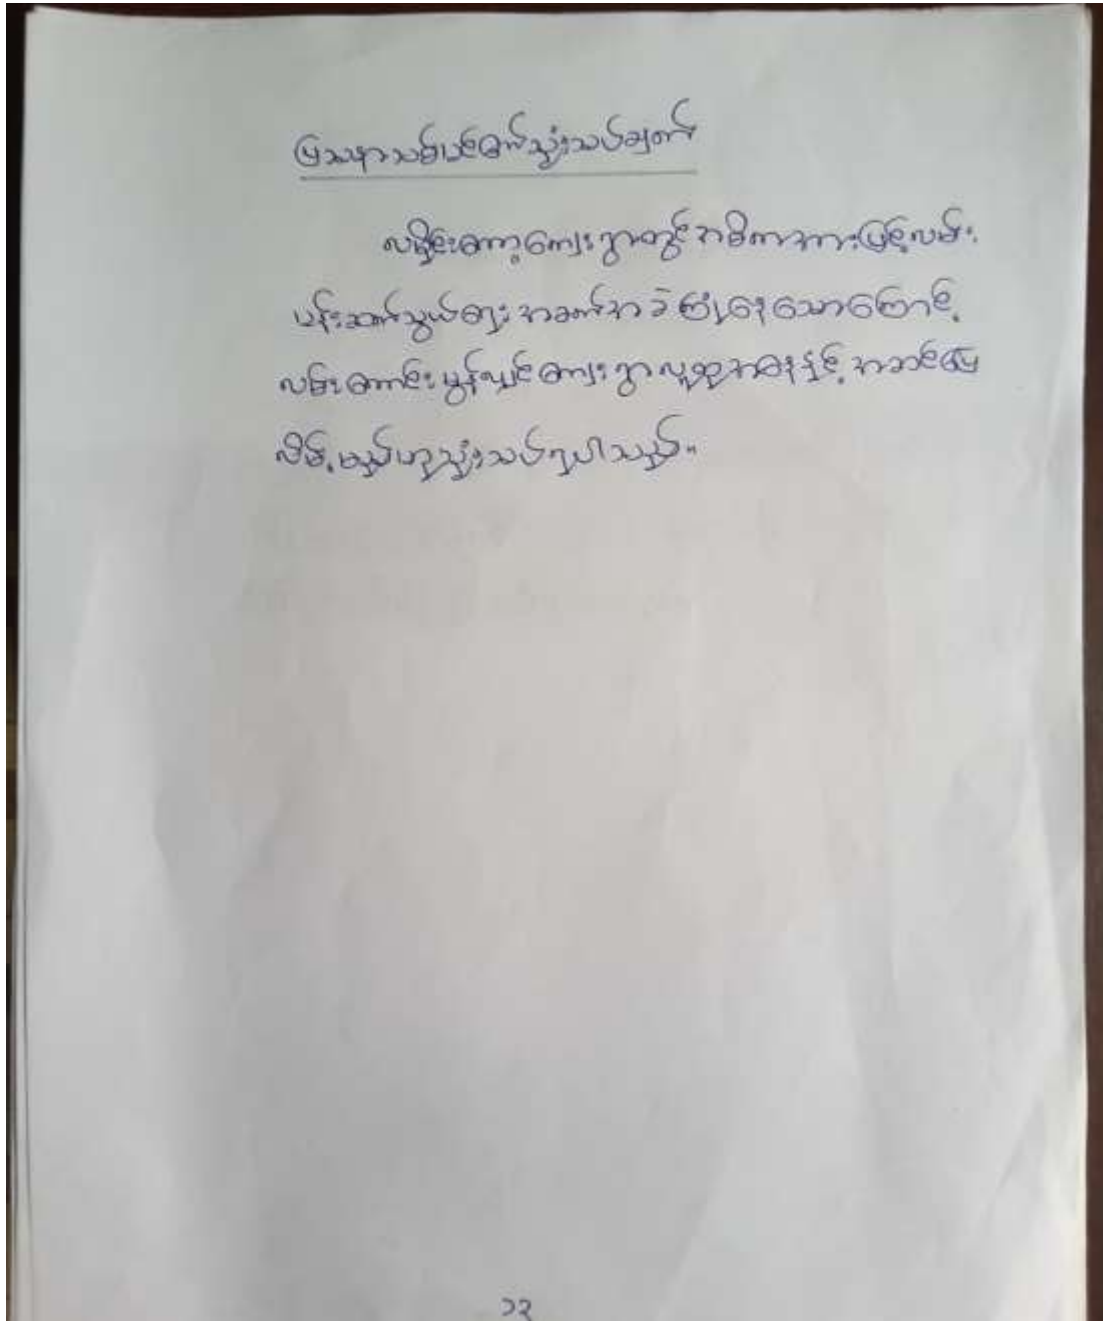 ပြဿနာသစ်ပင်မှတ်သုံးသပ်ချက်
လမှိုင်းတော့ကျေးရွာတွင် အဓိကအားဖြင့်လမ်း
ပန်းဆက်သွယ်ရေး အခက်အခဲ ကြုံနေသောကြောင့်
လမ်းကောင်းမွန်လျှင် ကျေးရွာ လူထုအနေနှင့် အဆင်ပြေ
လိမ့်မည်ဟုသုံးသပ်ရပါသည်။
၁၃